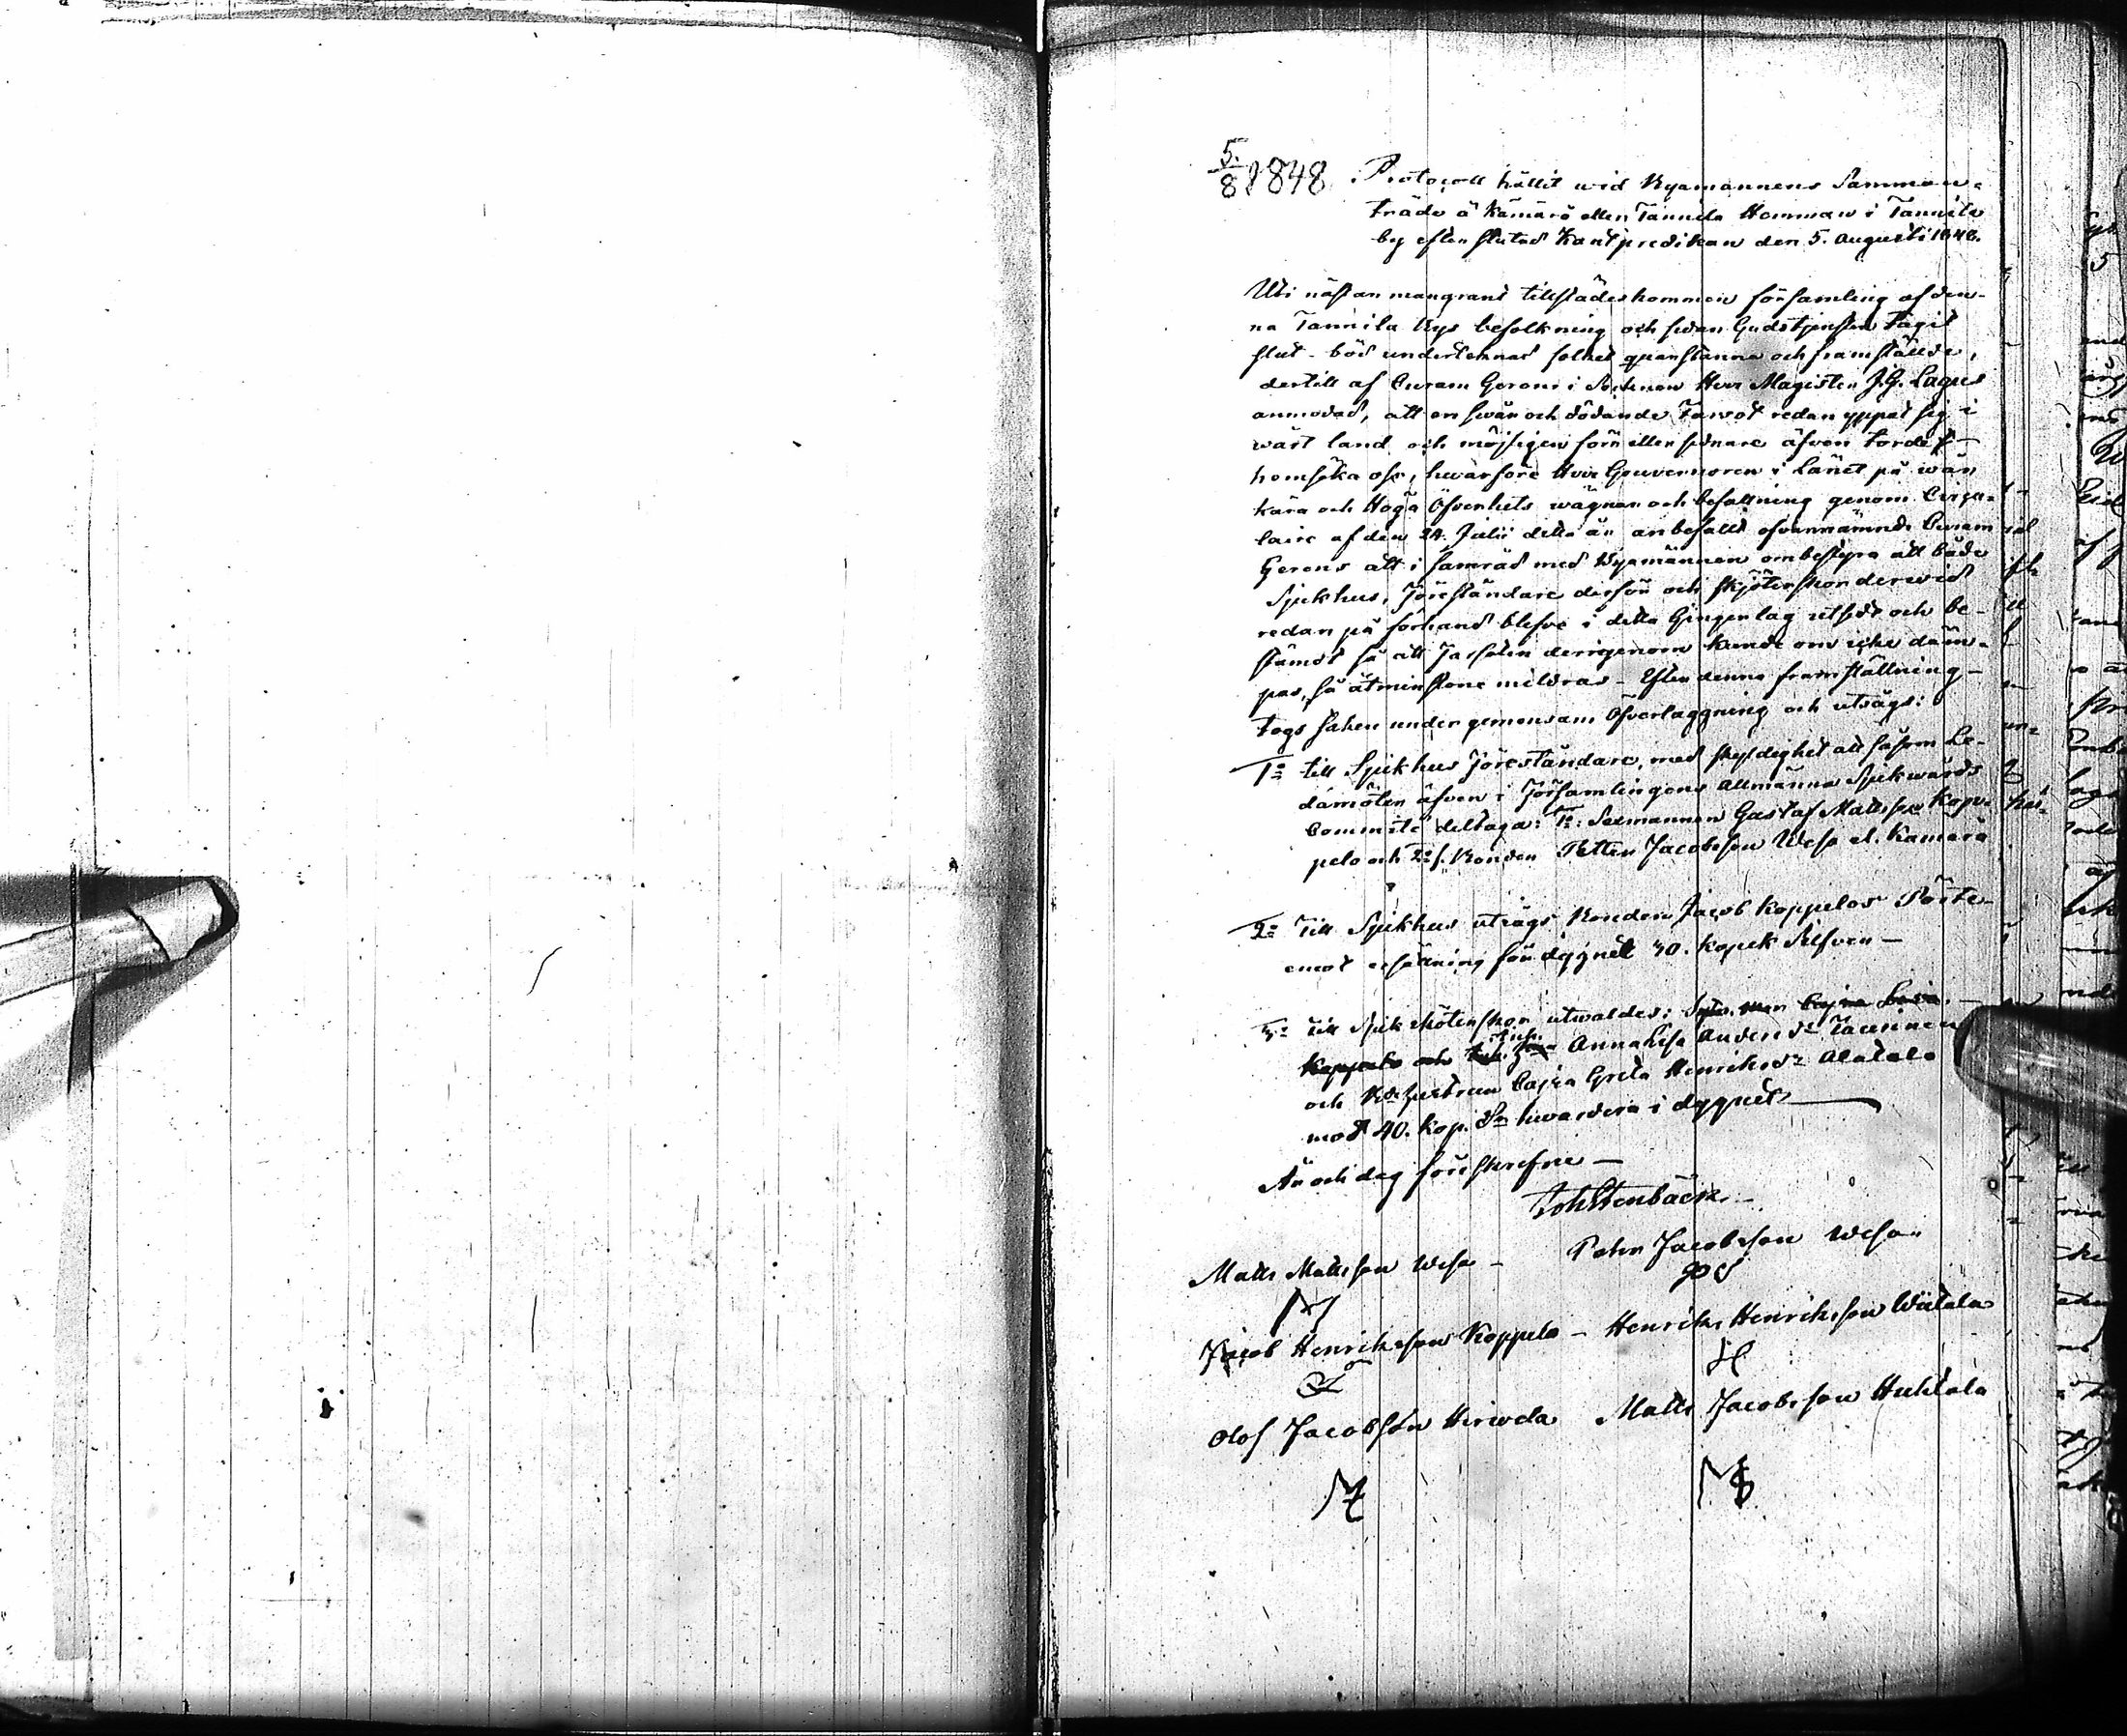 5/8 1848. Protocoll hållit wid Byamännens Samman-
träde å Kämärä eller Tannila Hemman i Tannila
by efter slutad Kantpredikan den 5. Augusti 1848.
Uti nästan mangrant tillstädeskommen församling af den-
na Tannila Bys befolkning och sedan Gudstjensten tagit
slut - böd undertecknad folket qvarstanna och framställde,
dertill af Curam Gerens i Socknen Herr Magister J.G. Lagus
anmodad, att en swår och dödande Farsot redan yppat sig i
wårt land och möjligen förr eller sednare äfven torde
hemsöka oss, hwarföre Herr Gouverneuren i Länet på wår
kära och Höga Öfverhets wägnar och befallning genom Circu-
laire af den 24. Julii detta år anbefallt ofvannämnde Curam
Gerens att i samråd med Byamännen ombestyra att både
Sjukhus, Föreståndare derför och skjöterskor derwid
redan på förhand blefve i detta Gingerlag utsedt och be-
stämdt så att Farsoten derigenom kunde om icke däm-
pas, så åtminstone mildras - Efter denna framställning -
togs saken under gemensam Öfverläggning och utsågs:
1o till Sjukhus Föreståndare, med skyldighet att såsom Le-
damöter äfven i Församlingens Allmänna Sjukwårds
Committé deltaga: 1o: Sexmannen Gustaf Mattsson Kop-
pelo och 2o f. Bonden Petter Jacobsson Wesa el. Kämärä
2o Till Sjukhus utsågs Bonden Jacob Koppelos Pörte
emot ersättning för dygnet 30. kopek Silfver -
3o Till Sjuksköterskor utwaldes: Cajsa
Koppelo och Anna Lisa Andersdr Taurinen
och Cajsa Greta Henriksdr Alatalo
mot 40. kop. Sr hwardera i dygnet
År och dag föreskrefne -
Joh Stenbäck
Matts Mattsson Wesa - Petter Jacobsson Wesa
M PS
Jacob Henriksson Koppelo - Henrik Henriksson Wiitala
H
Olof Jacobsson Hirwela Matts Jacobsson Huhtala